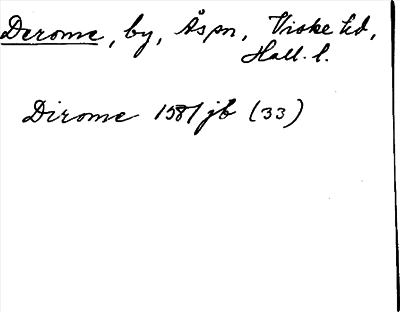 Derome, by, Ås sn, Viske hd,
Hall. l.
Dirome 1581 jb (33)